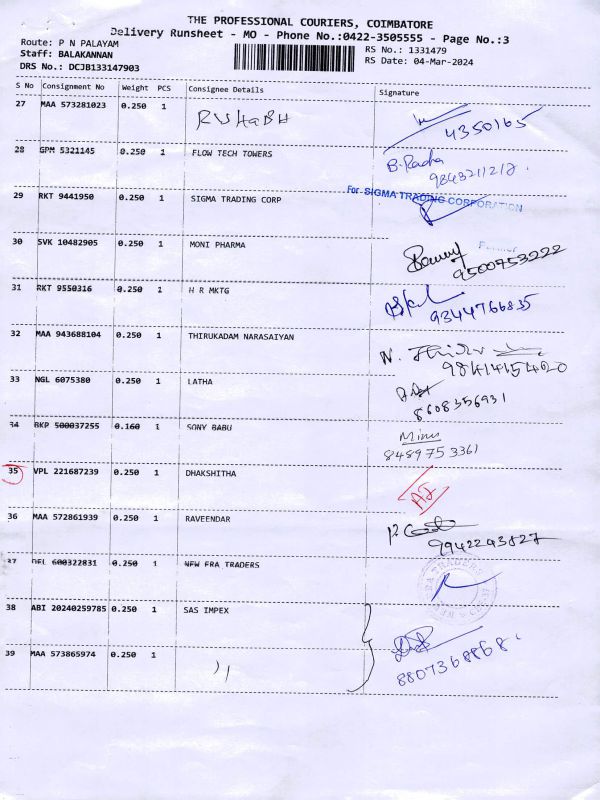 THE PROFESSIONAL COURIERS, COIMBATORE
Delivery Runsheet - MO - Phone No.:0422-3505555 - Page No.:3
Route: P N PALAYAM
RS No.: 1331479
Staff: BALAKANNAN
RS Date: 04-Mar-2024
DRS No.: DCJB133147903
S No Consignment No Weight PCS Consignee Details Signature
27 MAA 573281023 0.250 1 RUHaBH 4350165
28 GPM 5321145 0.250 1 FLOW TECH TOWERS B. Radha
9843211212
29 RKT 9441950 0.250 1 SIGMA TRADING CORP For SIGMA TRADING CORPORATION
30 SVK 10482905 0.250 1 MONI PHARMA 9500753222
31 RKT 9550316 0.250 1 H R MKTG 9344766835
32 MAA 943688104 0.250 1 THIRUKADAM NARASAIYAN
33 NGL 6075380 0.250 1 LATHA 8608356931
34 BKP 500037255 0.160 1 SONY BABU Minu
8489753361
35 VPL 221687239 0.250 1 DHAKSHITHA
36 MAA 572861939 0.250 1 RAVEENDAR 9942243827
37 DEL 600322831 0.250 1 NEW ERA TRADERS
38 ABI 20240259785 0.250 1 SAS IMPEX
39 MAA 573865974 0.250 1 ) 1 8807368868